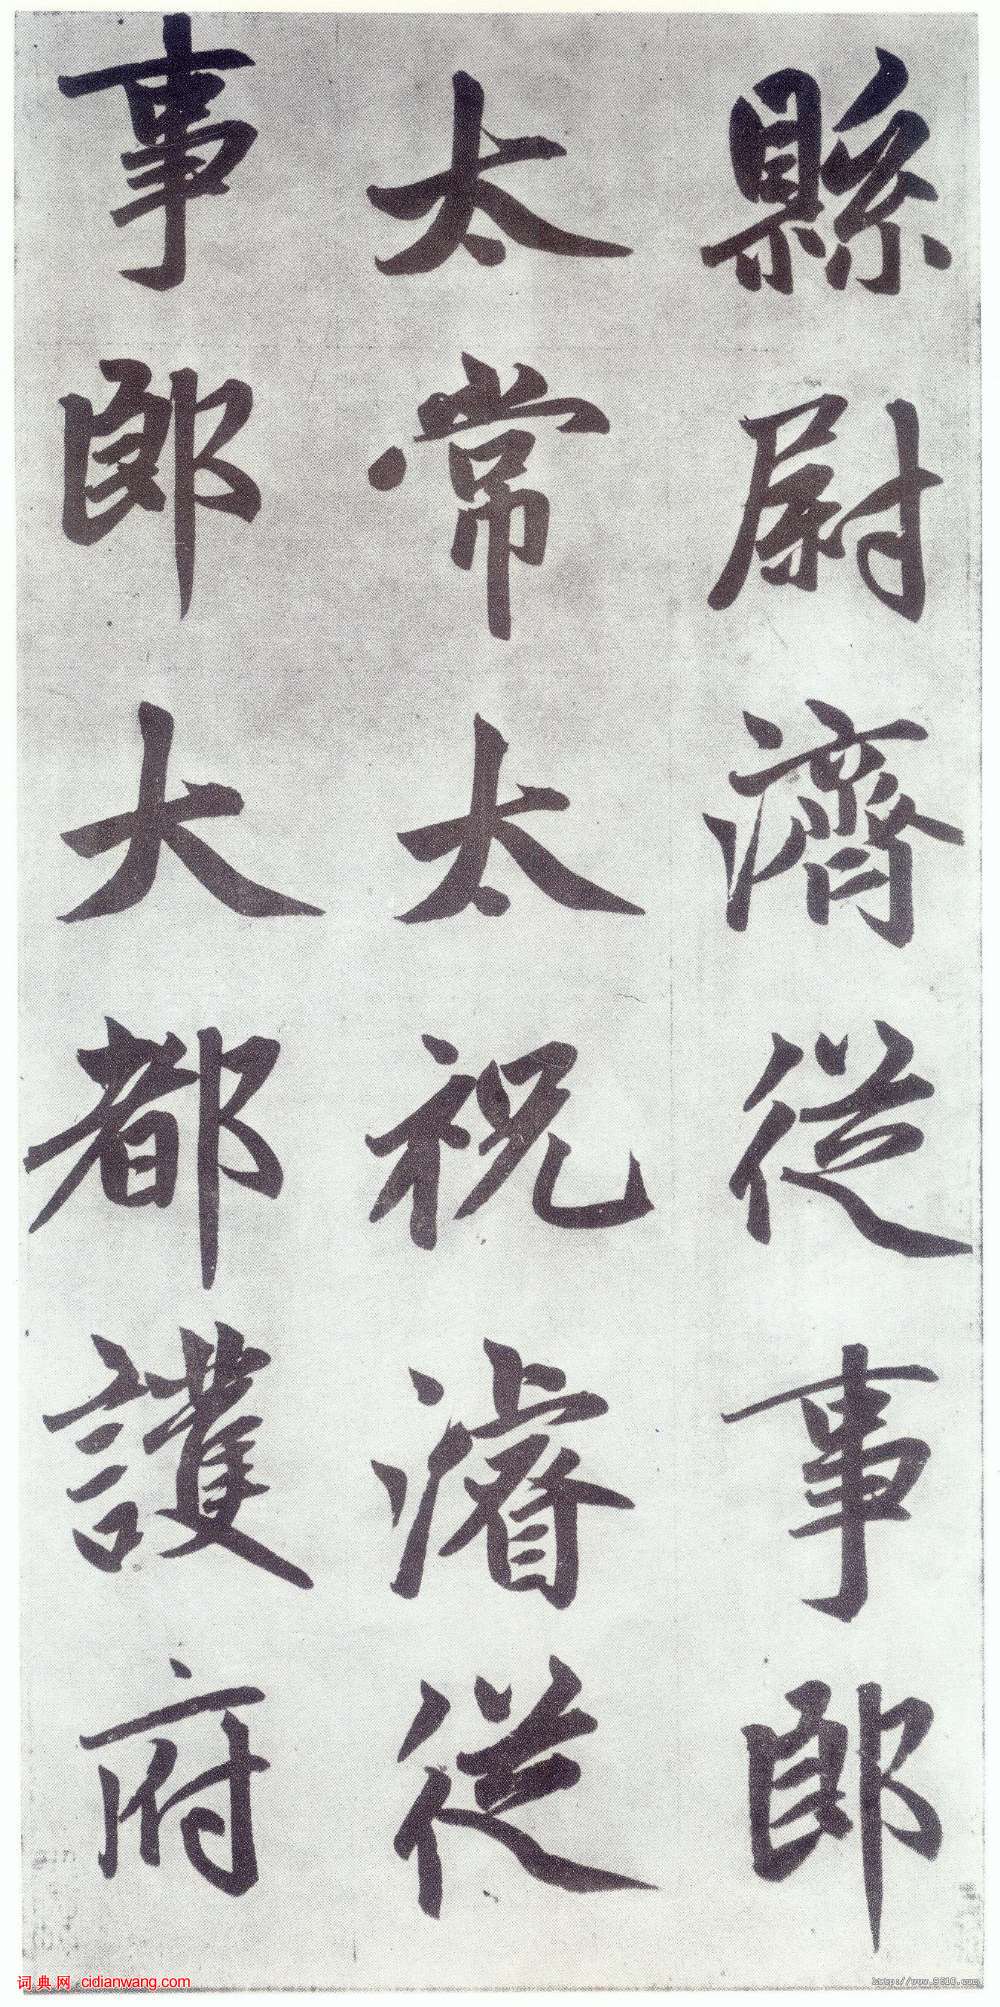 縣尉濟從事郎
太常太祝濬從
事郎大都護府
词典网 cidianwang.com